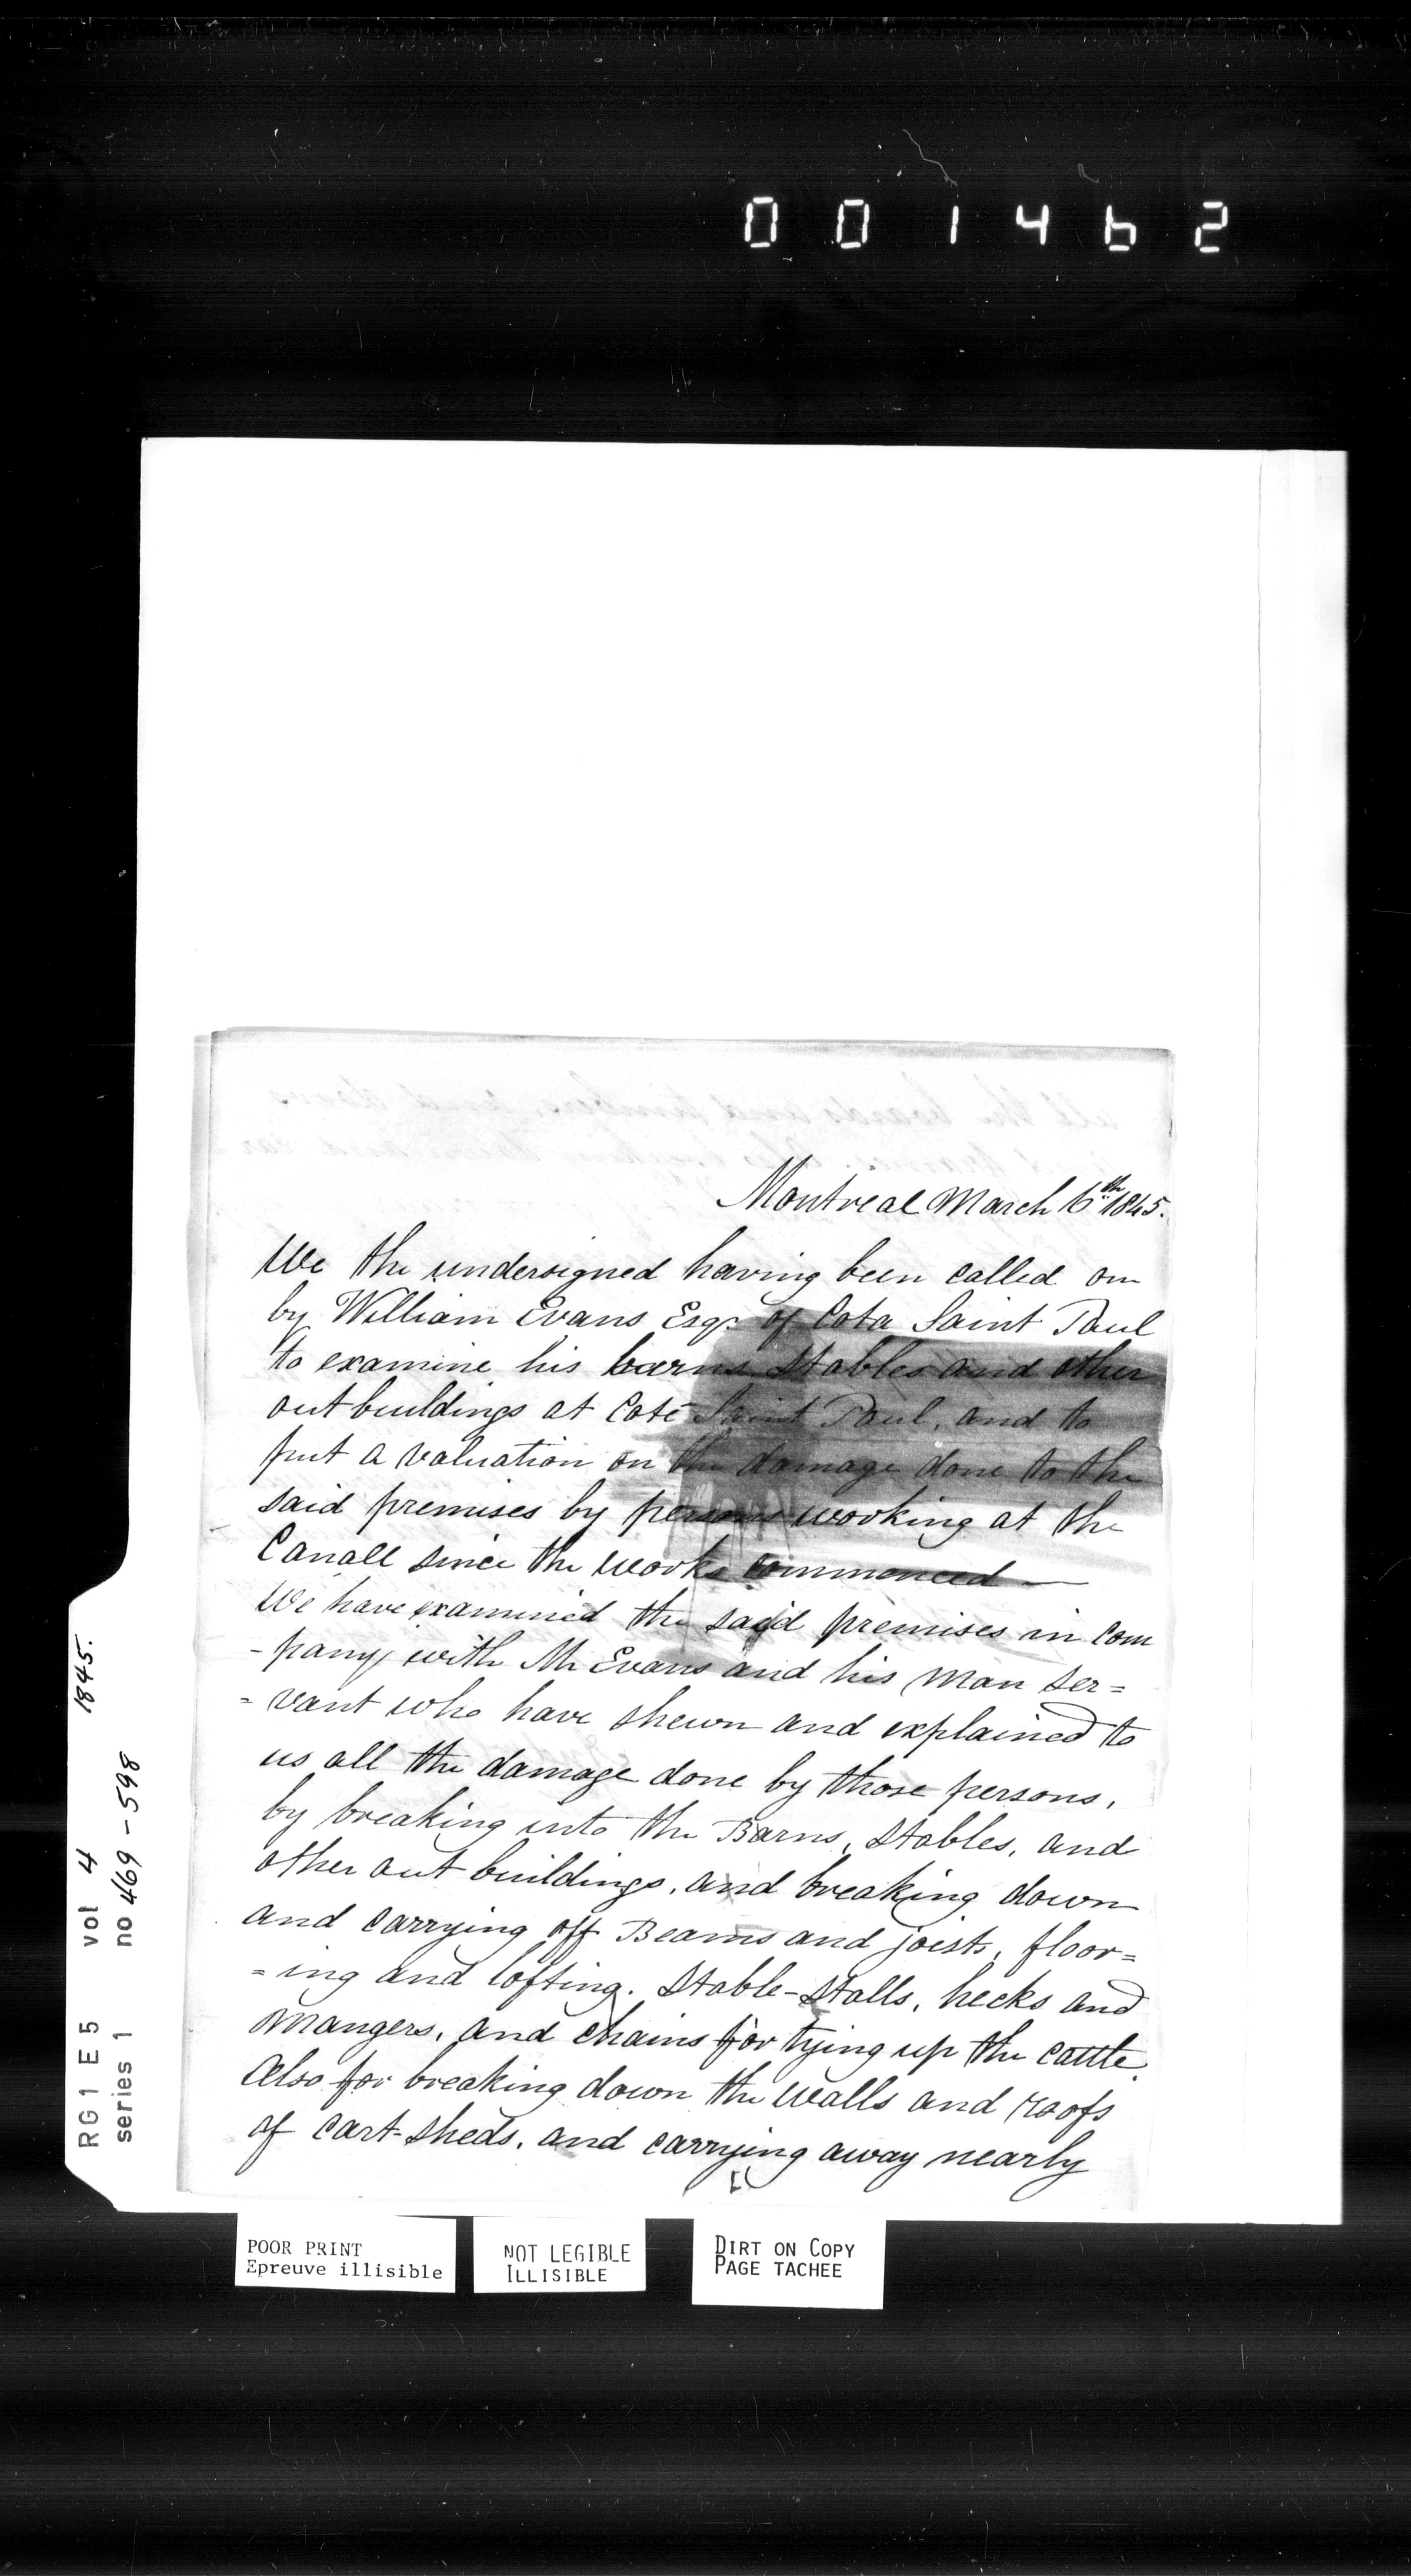 001462
Montreal March 6th 1845.
We the undersigned having been called on
by William Evans Esqr of Cota Saint Paul
to examine his barns stables and other
out buildings at Coté Saint Paul, and to
put a valuation on the damage done to the
said premises by persons working at the
Canall since the works commenced —
We have examined the said premises in com
-pany with Mr Evans and his man ser=
=vant who have shewn and explained to
us all the damage done by those persons,
by breaking into the Barns, stables, and
other out buildings, and breaking down
and carrying off Beams and joists, floor=
=ing and lofting. Stable-stalls, hecks and
mangers, and chains for tying up the cattle.
Also for breaking down the walls and roofs
of cart-sheds, and carrying away nearly
RG1 E5 vol 4 1845.
series 1 no 469-598
POOR PRINT
Epreuve illisible
NOT LEGIBLE
ILLISIBLE
DIRT ON COPY
PAGE TACHEE